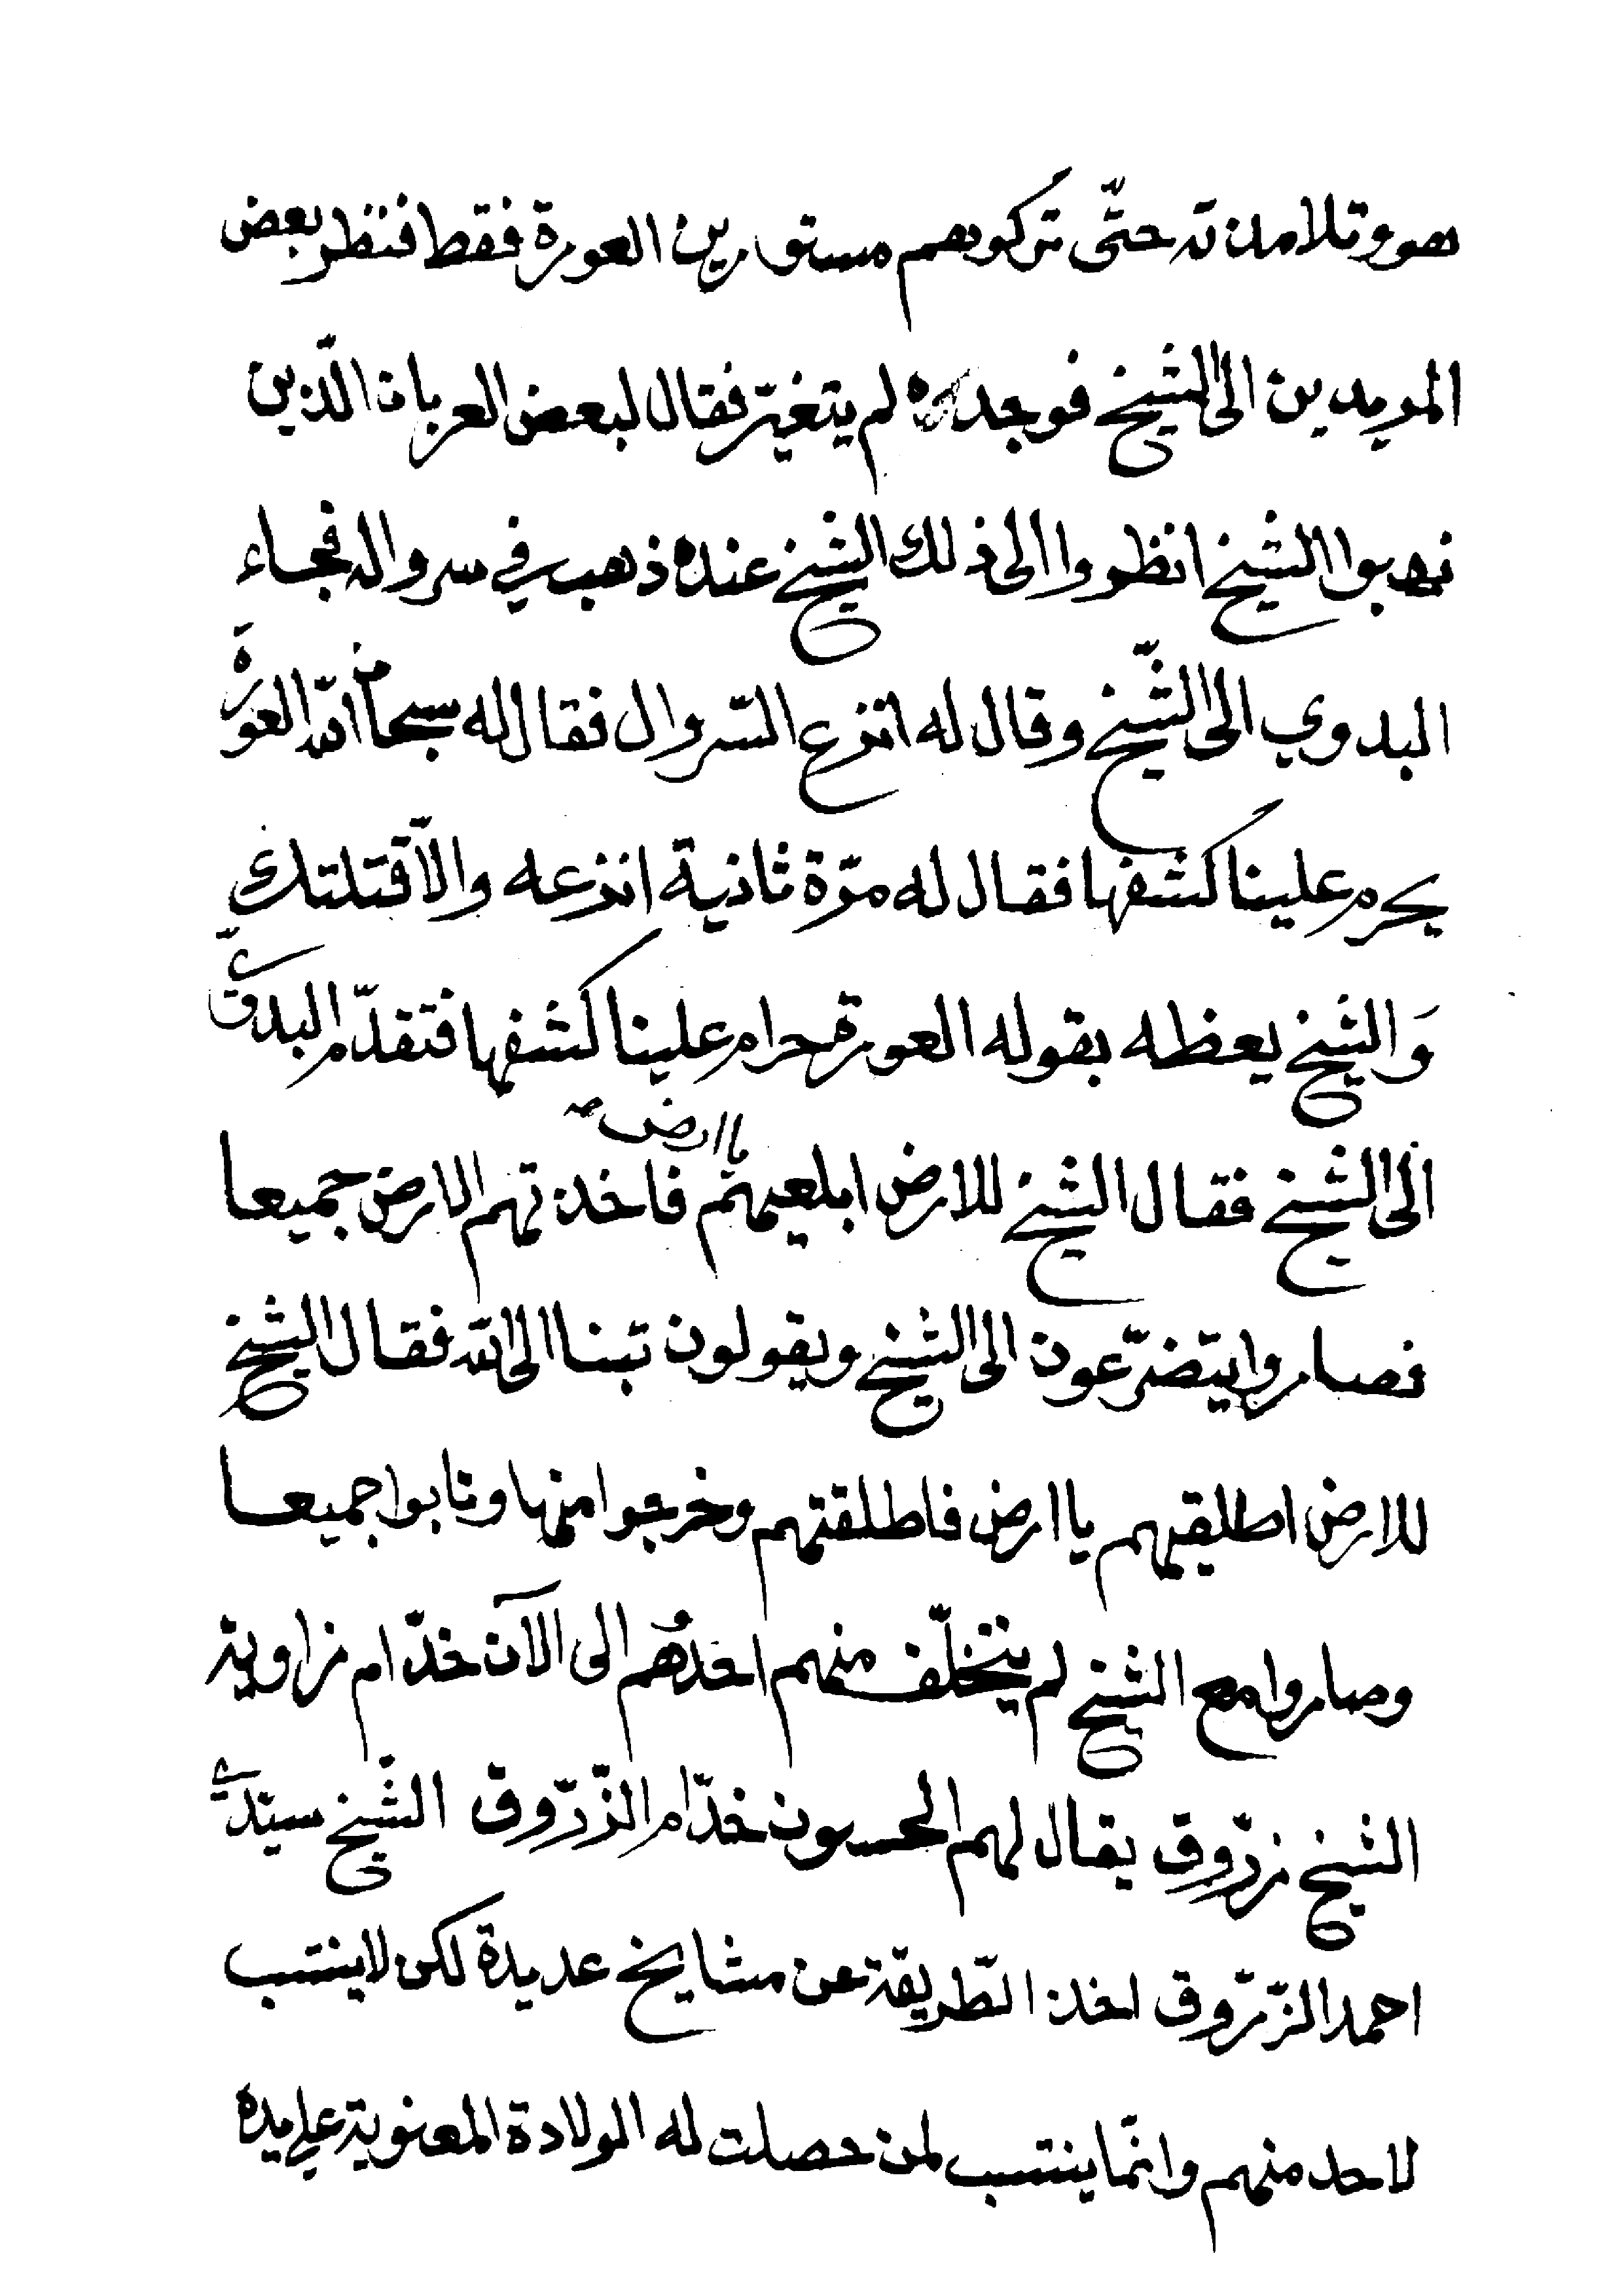 هو وتلامذته حتّى تركوهم مستورين العورة فقط فنظر بعض
المريدين الى الشيخ فوجده لم يتغيّر فقال لبعض العربان الّذين
نهبوا الشيخ انظروا الى ذلك الشيخ عنده ذهب في سرواله فجاء
البدوي الى الشّيخ وقال له انزع السّروال فقال له سبحان الله العورةَ
يحرم علينا كشفها فقال له مرّة ثانية انزعه والّا قتلتك
وَالشيخ يعظه بقوله العورة حرام علينا كشفها فتقدّم البدويّ
الى الشيخ فقال الشيخ للارض ابلعيهم يا ارض صح فاخذتهم الارض جميعا
فصاروا يتضرّعون الى الشيخ ويقولون تبنا الى الله فقال الشيخ
للارض اطلقيهم يا ارض فاطلقتهم وخرجوا منها وتابوا جميعا
وصاروا مع الشيخ لم يتخلّف منهم احدُهم الى الآن خدّام زاوية
الشيخ زرّوق يقال لهم الحسون خدّام الزّرّوق الشّيخ سيّدي
احمد الزّرّوق اخذ الطّريقة عن مشايخ عديدة لكن لا ينتسب
لاحد منهم وانّما ينتسب لمن حصلت له الولادة المعنوية على يده